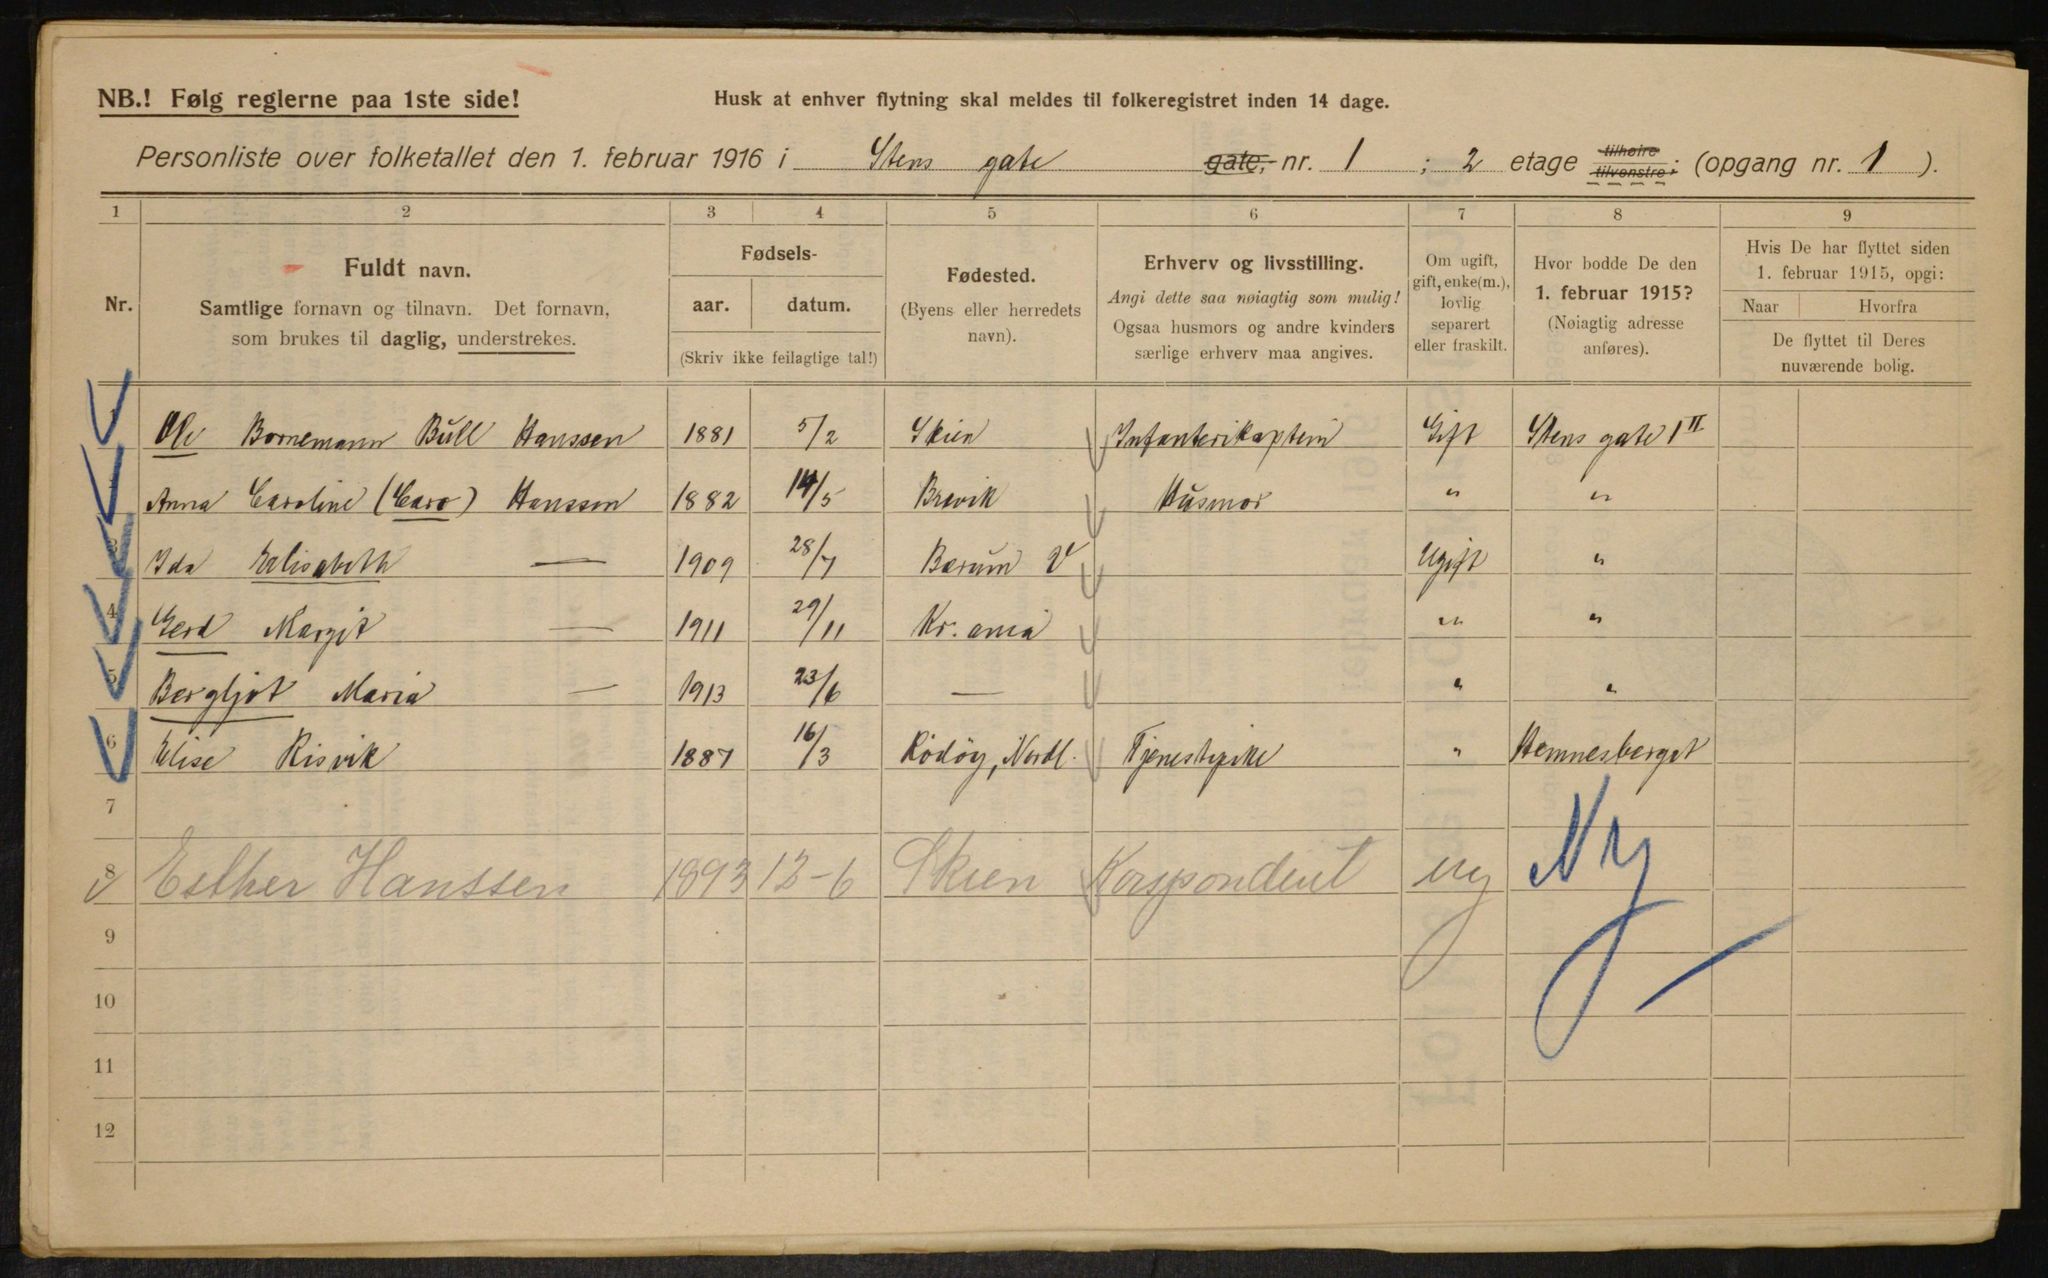 NB.! Følg reglerne paa 1ste side!
Husk at enhver flytning skal meldes til folkeregistret inden 14 dage.
Personliste over folketallet den 1. februar 1916 i Stens gate gate, nr. 1 ; 2 etage tilhøire tilvenstre; (opgang nr. 1 ).
1 2 3 4 5 6 7 8 9
Nr.
Fuldt navn.
Samtlige fornavn og tilnavn. Det fornavn,
som brukes til daglig, understrekes.
Fødsels-
aar. datum.
(Skriv ikke feilagtige tal!)
Fødested.
(Byens eller herredets
navn).
Erhverv og livsstilling.
Angi dette saa nøiagtig som mulig!
Ogsaa husmors og andre kvinders
særlige erhverv maa angives.
Om ugift,
gift, enke(m.),
lovlig
separert
eller fraskilt.
Hvor bodde De den
1. februar 1915?
(Nøiagtig adresse
anføres).
Hvis De har flyttet siden
1. februar 1915, opgi:
Naar Hvorfra
De flyttet til Deres
nuværende bolig.
Ole Bornemann Bull Hanssen 1881 5/2 Skien Infanterikaptein Gift Stens gate 1 II
Anna Caroline (Caro) Hanssen 1882 14/5 Brevik Husmor " "
3 Ida Elisabeth — 1909 28/7 Bærum V Ugift "
4 Gerd Margit — 1911 29/11 Kr.ania " "
5 Bergljot Maria — 1913 23/6 — " "
6 Elise Risvik 1887 16/3 Rödöy, Nordl. Tjenestepike " Hemnesberget
7
8 Esther Hanssen 1893 12-6 Skien Korspondent ug Ny
9
10
11
12